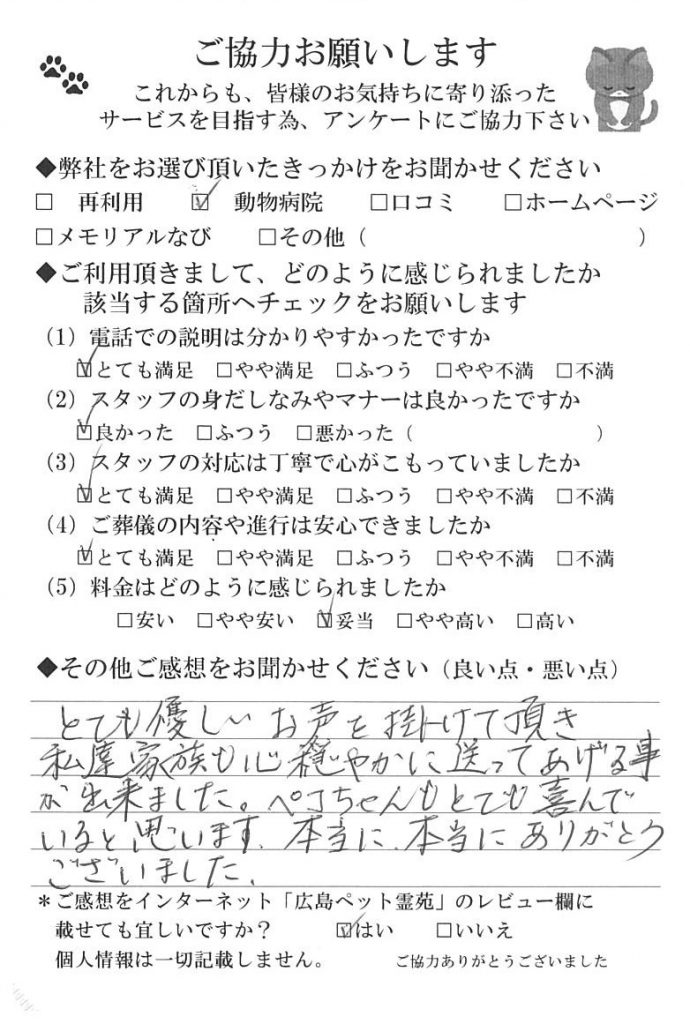 ご協力お願いします
これからも、皆様のお気持ちに寄り添った
サービスを目指す為、アンケートにご協力下さい
◆弊社をお選び頂いたきっかけをお聞かせください
□ 再利用 ☑ 動物病院 □口コミ □ホームページ
□メモリアルなび □その他（ ）
◆ご利用頂きまして、どのように感じられましたか
該当する箇所へチェックをお願いします
(1) 電話での説明は分かりやすかったですか
☑とても満足 □やや満足 □ふつう □やや不満 □不満
(2) スタッフの身だしなみやマナーは良かったですか
☑良かった □ふつう □悪かった（ ）
(3) スタッフの対応は丁寧で心がこもっていましたか
☑とても満足 □やや満足 □ふつう □やや不満 □不満
(4) ご葬儀の内容や進行は安心できましたか
☑とても満足 □やや満足 □ふつう □やや不満 □不満
(5) 料金はどのように感じられましたか
□安い □やや安い ☑妥当 □やや高い □高い
◆その他ご感想をお聞かせください（良い点・悪い点）
とても優しいお声を掛けて頂き
私達家族も心穏やかに送ってあげる事
が出来ました。ペコちゃんもとても喜んで
いると思います。本当に、本当にありがとう
ございました。
＊ご感想をインターネット「広島ペット霊苑」のレビュー欄に
載せても宜しいですか？ ☑はい □いいえ
個人情報は一切記載しません。 ご協力ありがとうございました